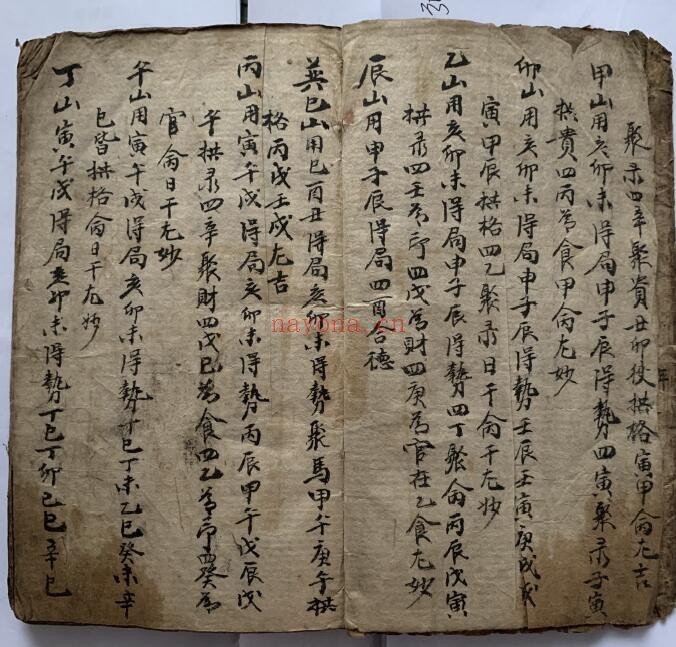 聚录四辛聚貴丑卯夾拱格寅甲侖尤吉
甲山用亥卯未得局申子辰得勢四寅聚录子寅
拱貴四丙為食甲侖尤妙
卯山用亥卯未得局申子辰得勢壬辰壬寅庚戌戊
寅甲辰拱格四乙聚录日干侖干尤妙
乙山用亥卯未得局申子辰得勢四丁聚侖丙辰戊寅
拱录四壬為印四戊為財四庚為官在乙食尤妙
辰山用甲子辰得局四酉合德
巽巳山用巳酉丑得局亥卯未得勢聚馬甲午庚午拱
格丙戌壬戌尤吉
丙山用寅午戌得局亥卯未得勢丙辰甲午戊辰戊
午拱录四辛聚財四戊巳為食四乙為印四癸為
官侖日干尤妙
午山用寅午戌得局亥卯未得勢丁巳丁未乙巳癸未辛
巳皆拱格侖日干尤妙
丁山寅午戌得局亥卯未得勢丁巳丁卯己巳辛巳
nayona.cn